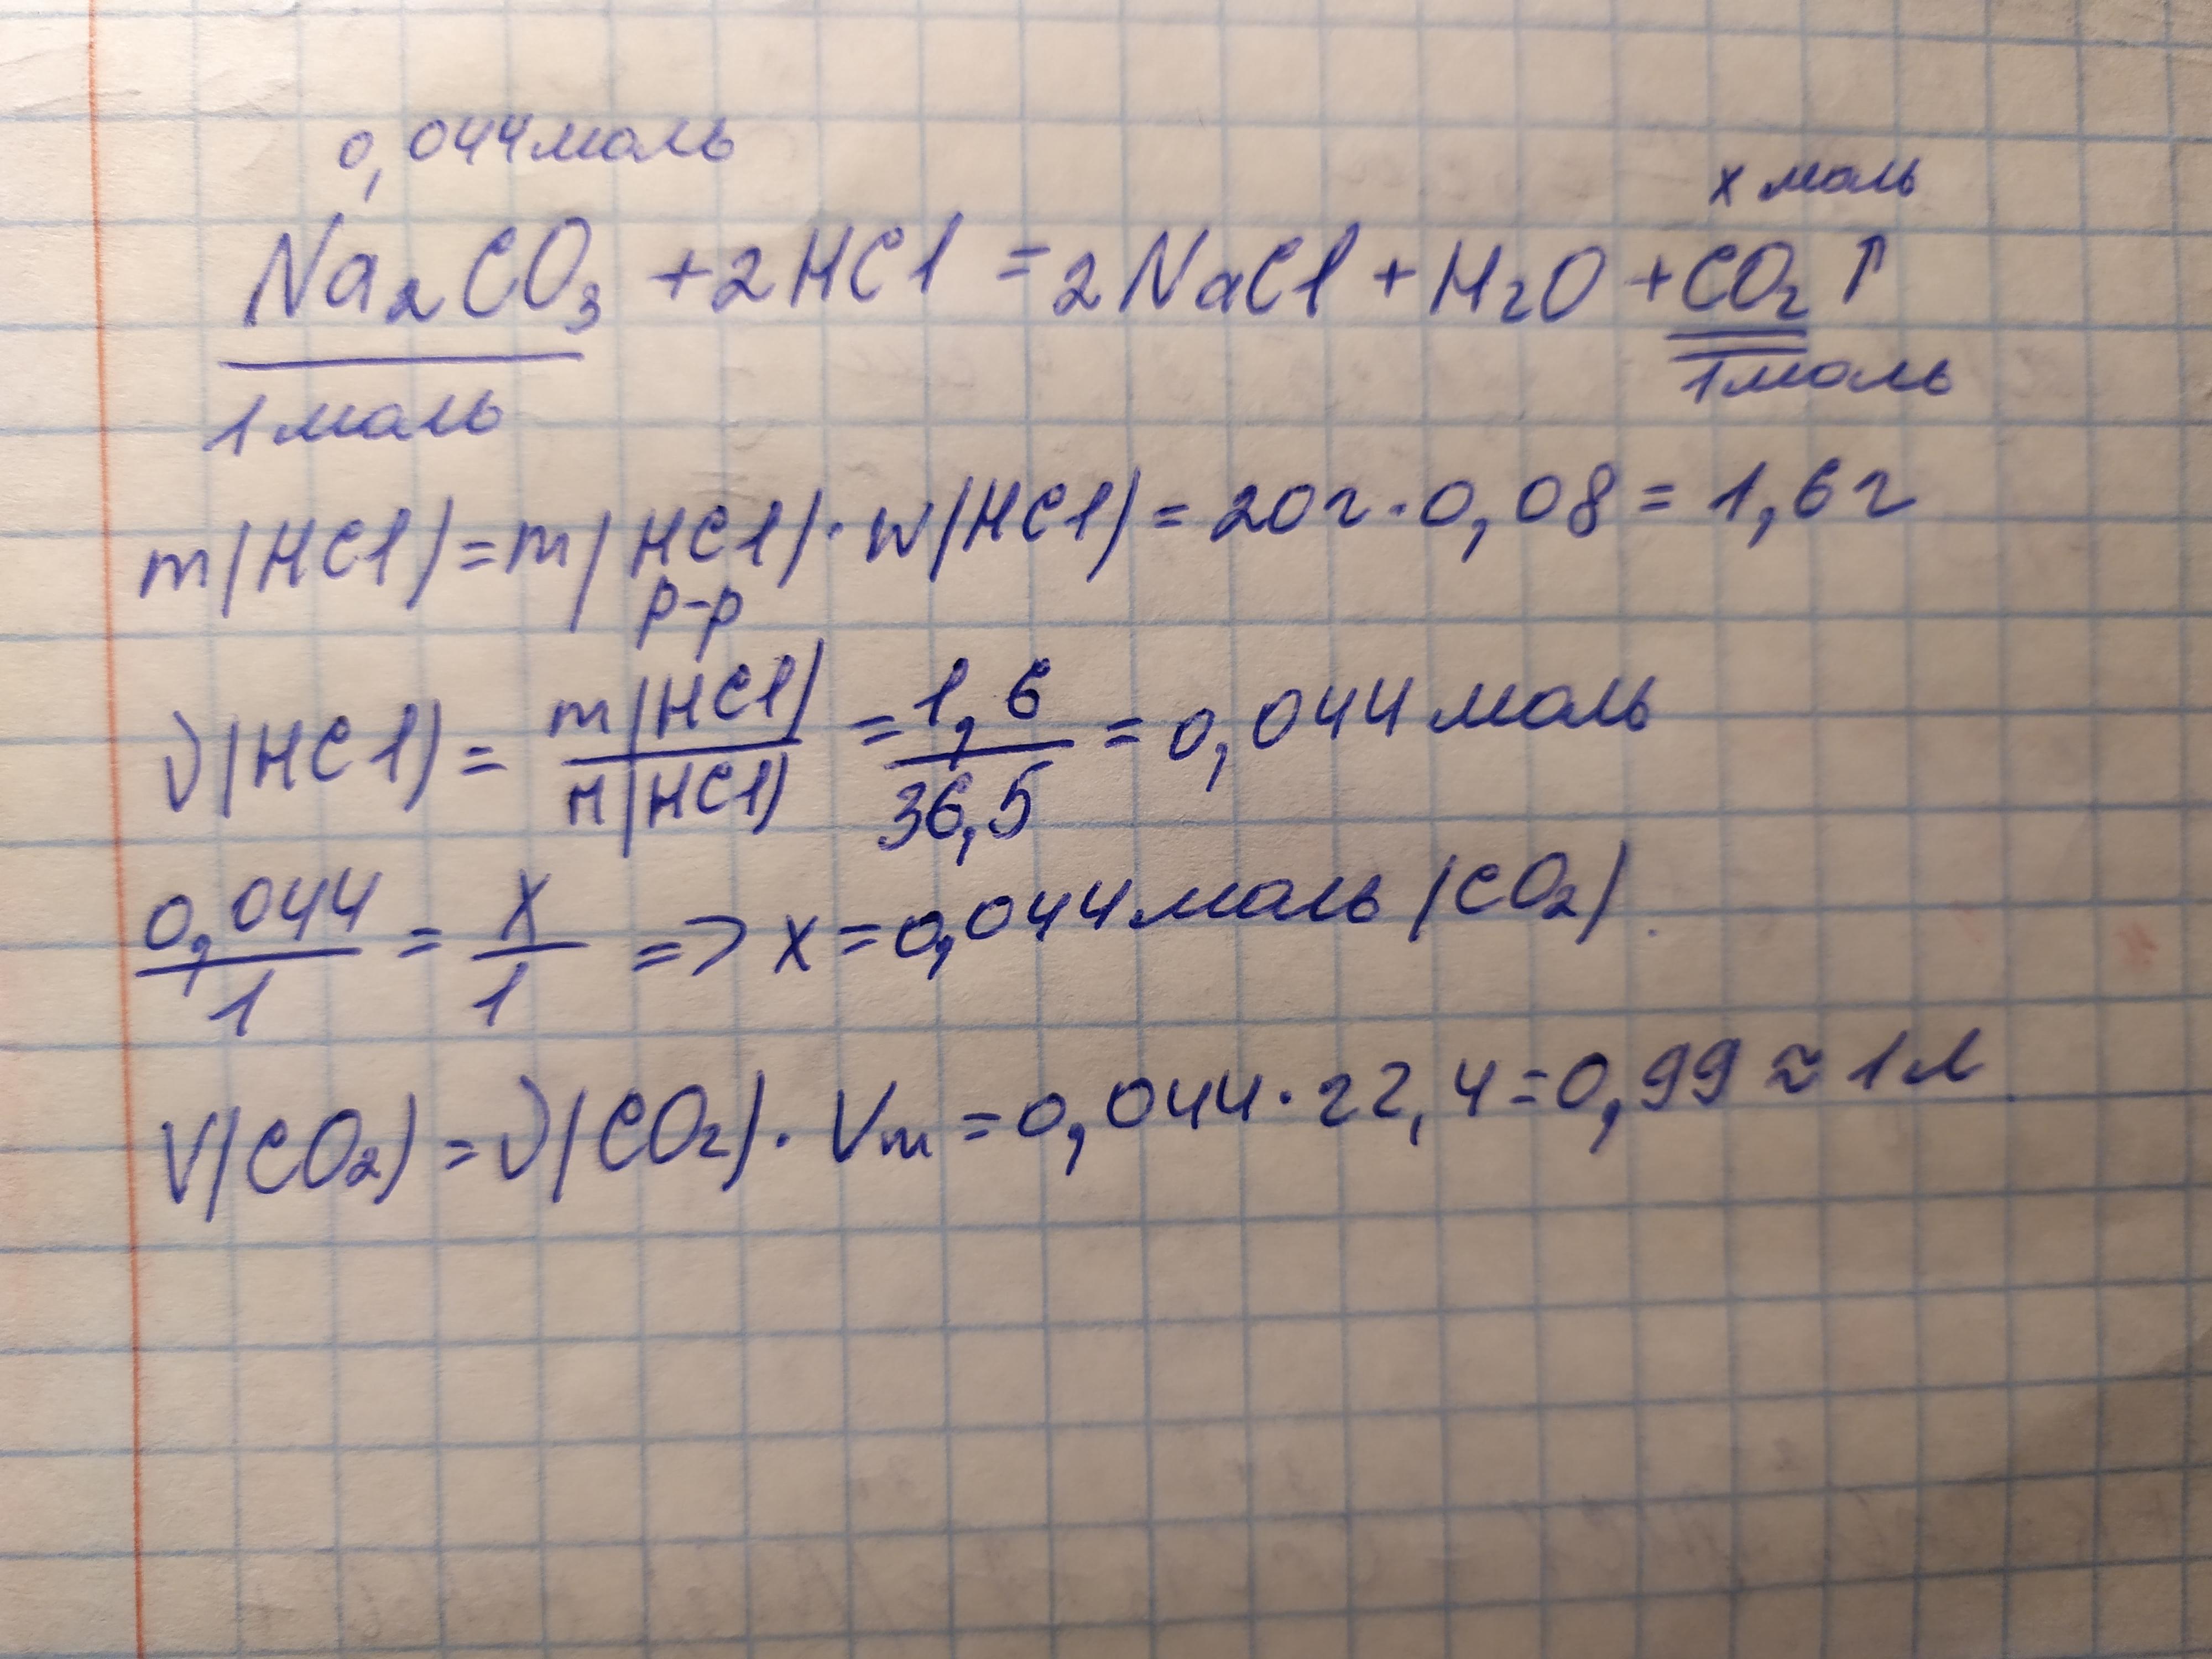 0,044моль
x моль
Na₂CO₃ + 2HCl = 2NaCl + H₂O + CO₂↑
1 моль 1моль
m(HCl) = m(HCl) · w(HCl) = 20г · 0,08 = 1,6г
р-р
ν(HCl) = m(HCl)/M(HCl) = 1,6/36,5 = 0,044 моль
0,044/1 = x/1 => x = 0,044моль (CO₂).
V(CO₂) = ν(CO₂) · Vm = 0,044 · 22,4 = 0,99 ≈ 1л